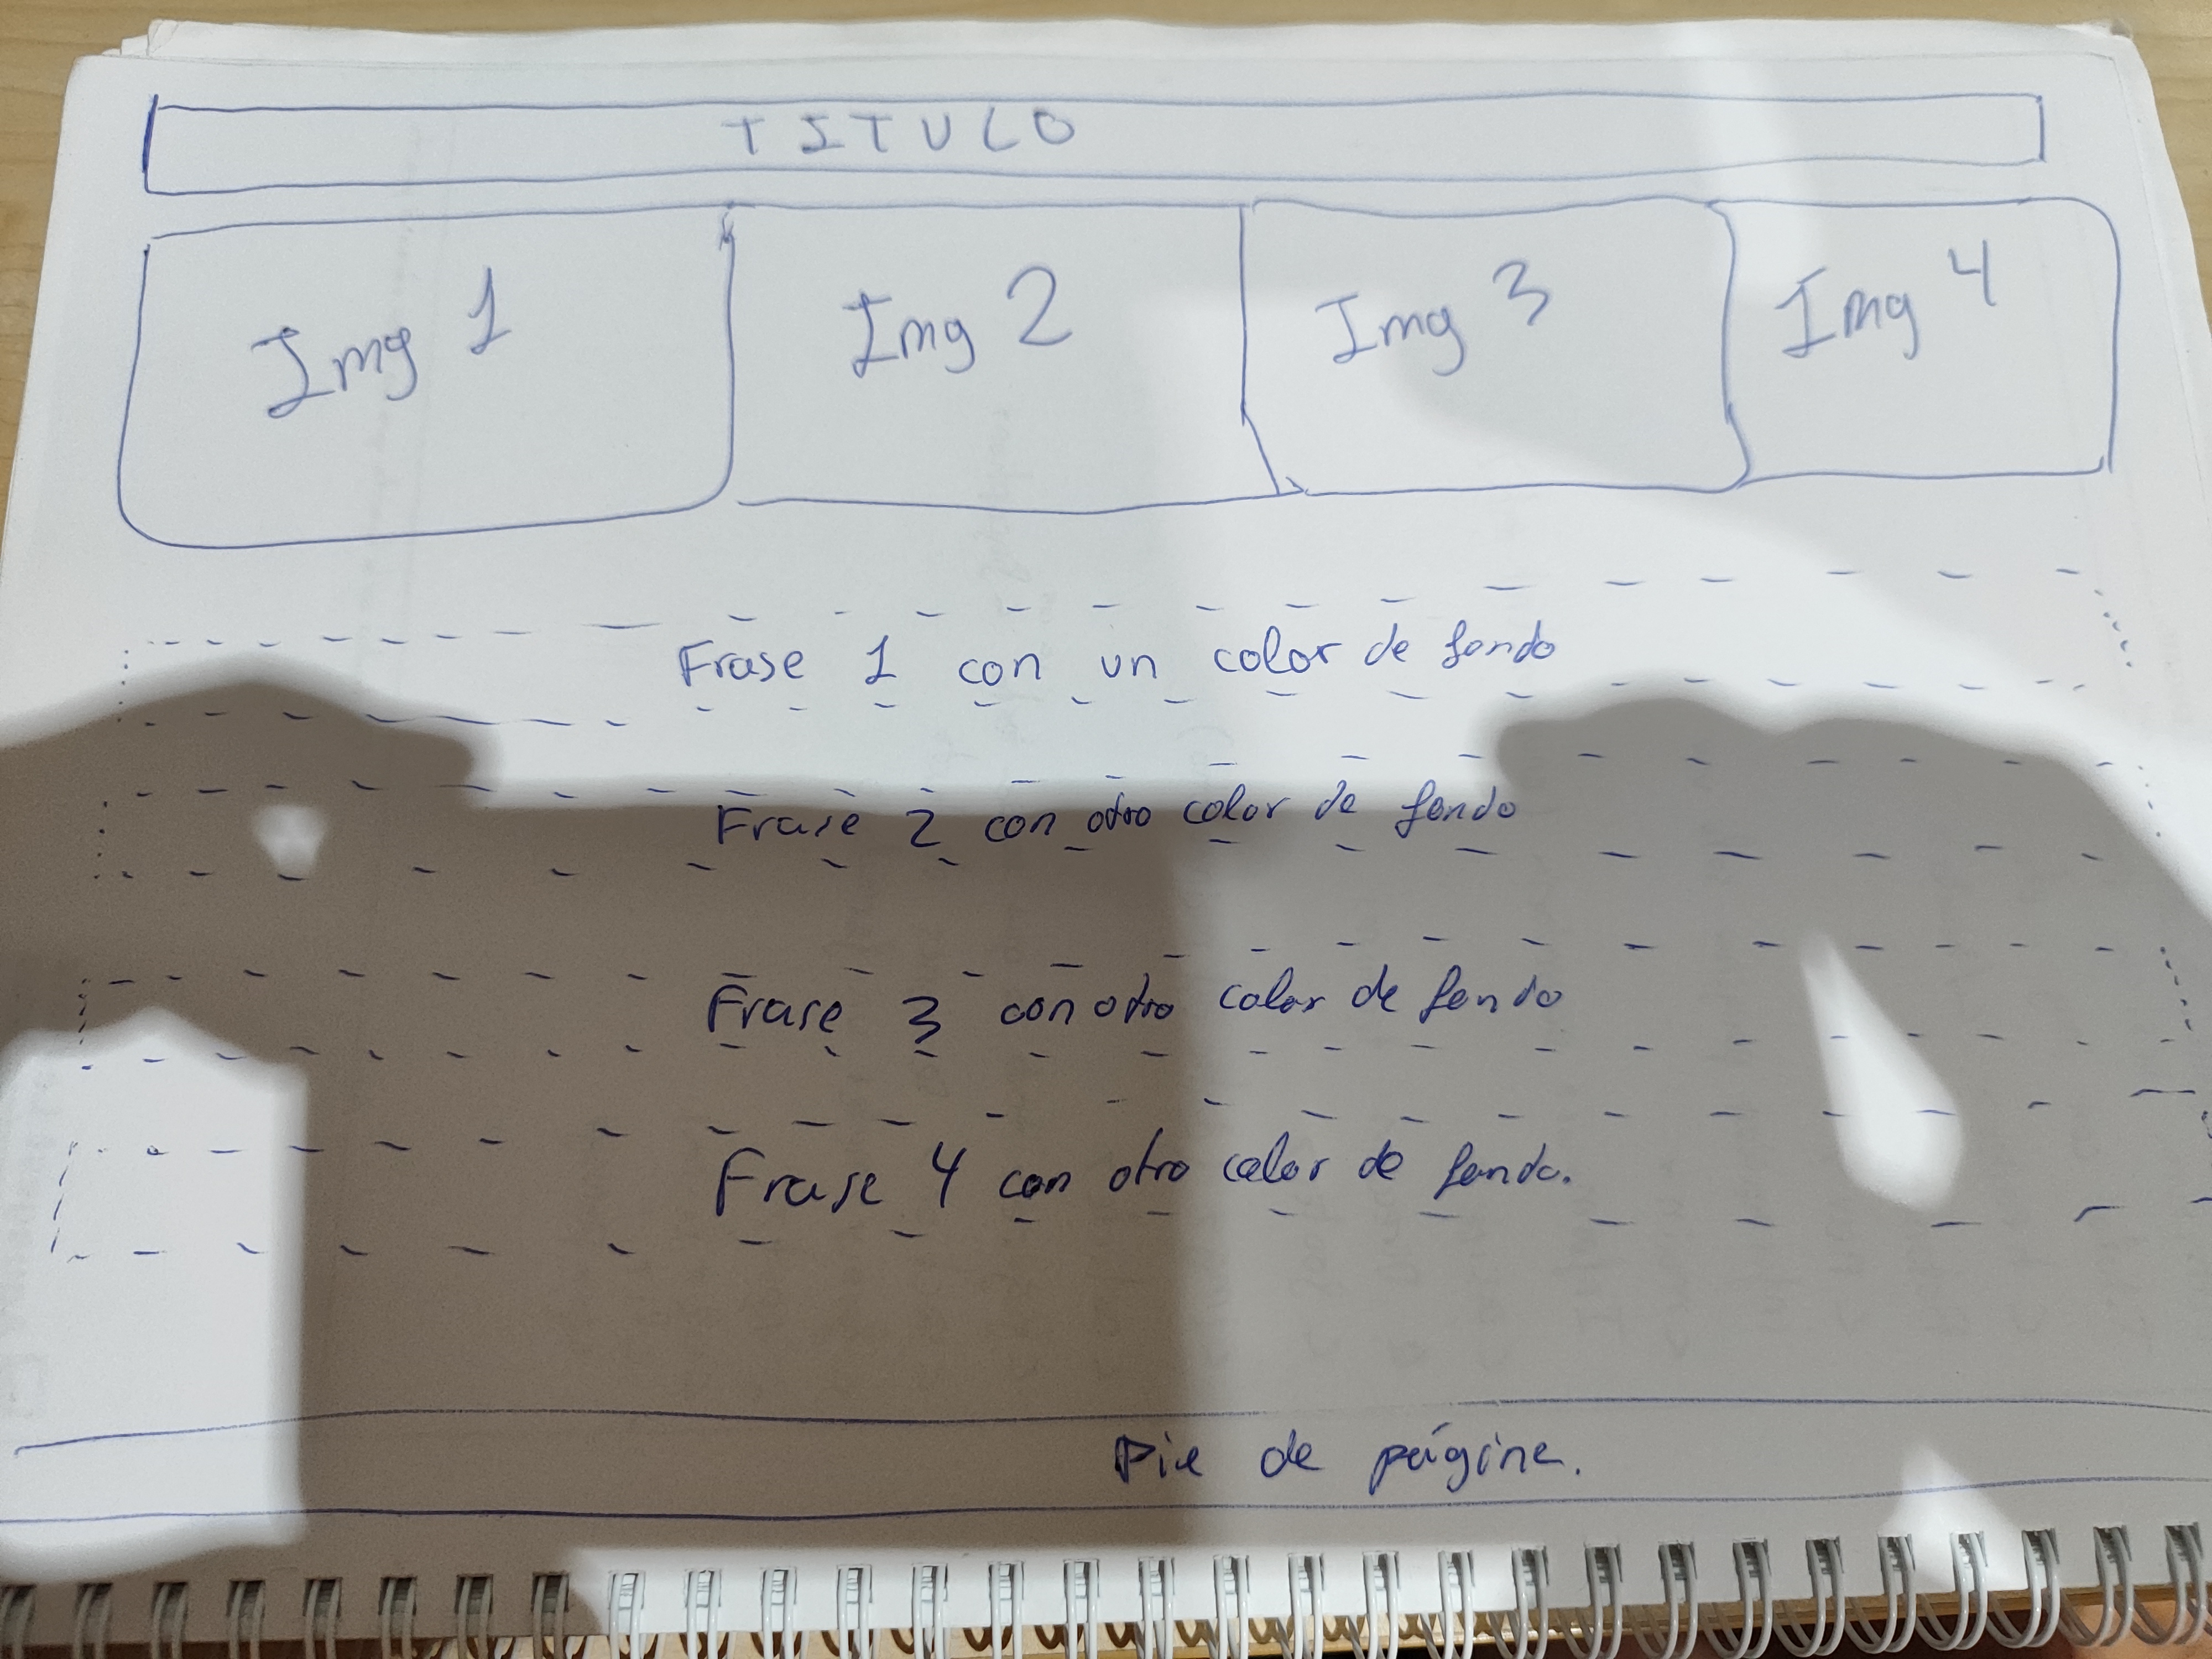 TITULO
Img 1
Img 2
Img 3
Img 4
Frase 1 con un color de fondo
Frase 2 con otro color de fondo
Frase 3 con otro color de fondo
Frase 4 con otro color de fondo.
Pie de página.